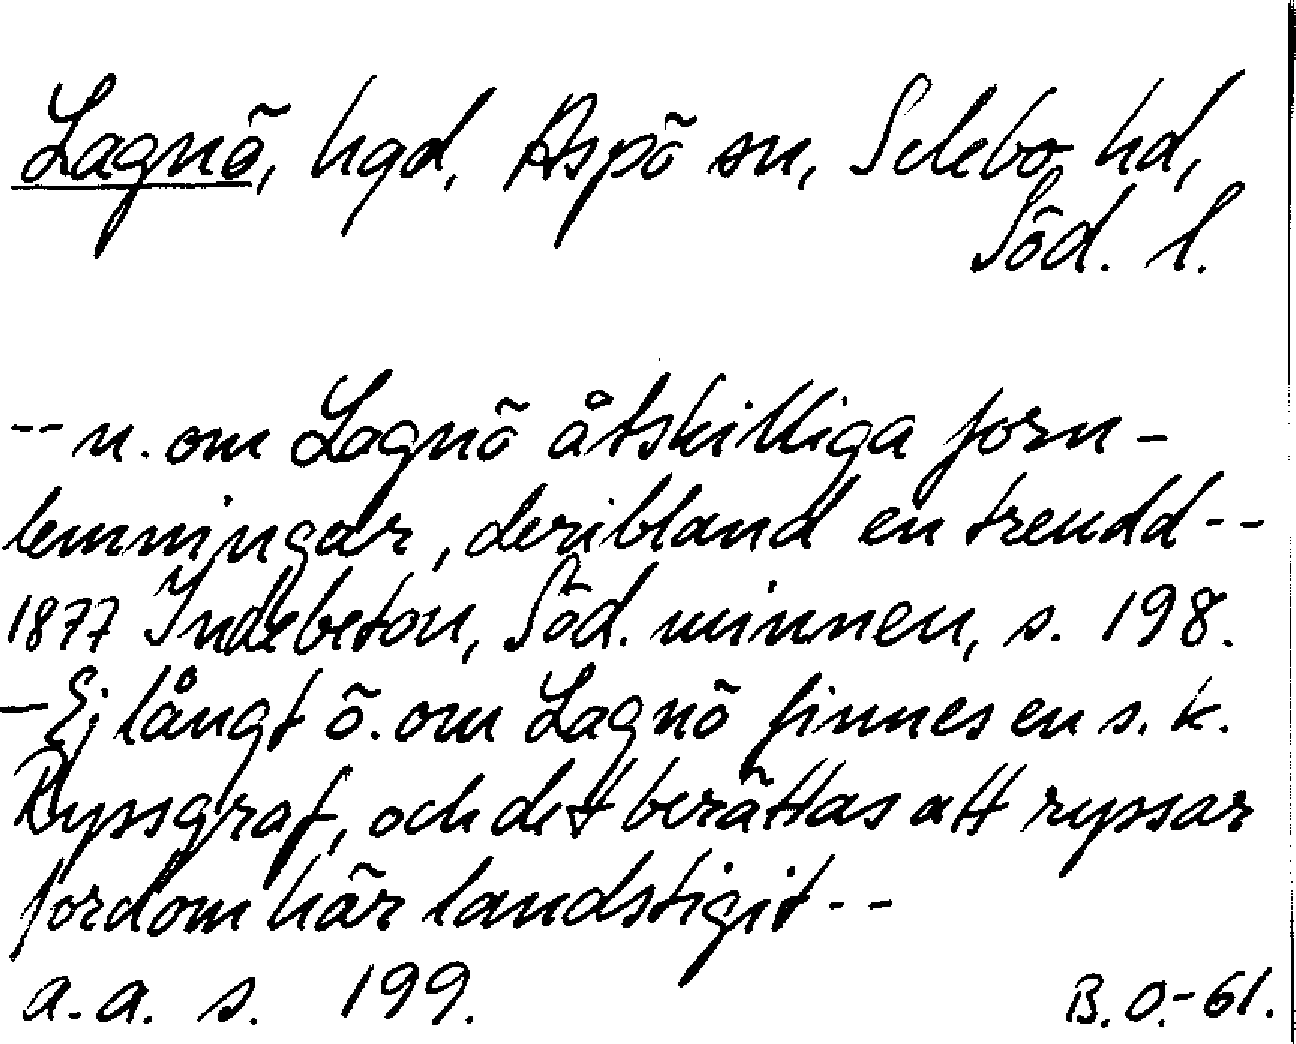 Lagnö, hgd, Aspö sn, Selebo hd,
Söd. l.
-- n. om Lagnö åtskilliga forn-
lemningar, deribland en treudd --
1877 Indebetou, Söd. minnen, s. 198.
- Ej långt ö. om Lagnö finnes en s. k.
Ryssgraf, och det berättas att ryssar
fordom här landstigit --
a. a. s. 199.
B. O. -61.